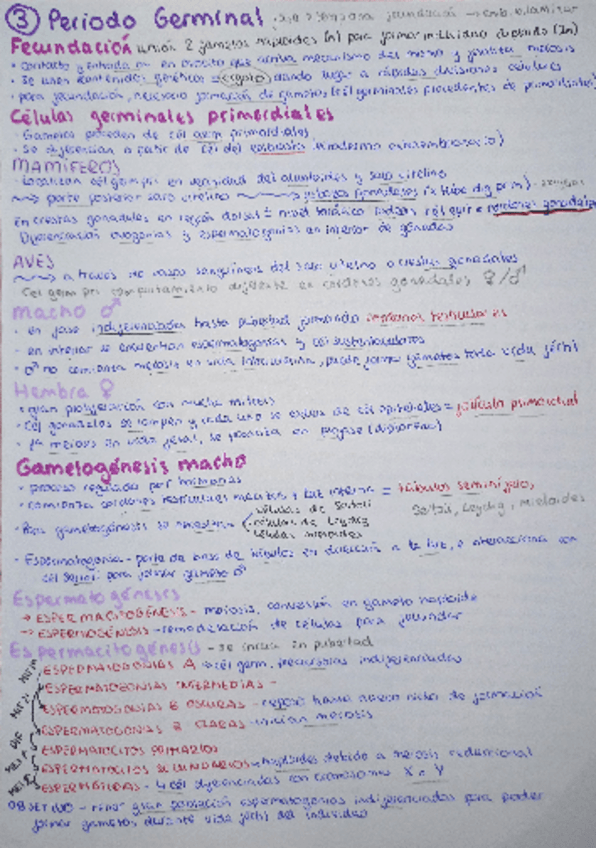 ③ Periodo Germinal
Fecundación unión 2 gametos haploides (n) para formar individuo diploide (2n)
• contacto y entrada en ovocito que activa mecanismo del mismo y finaliza meiosis
• Se unen contenidos genéticos (cigoto) dando lugar a rápidas divisiones celulares
• para fecundación, necesario formación de gametos (cél germinales procedentes de primordiales)
Células germinales primordiales
• Gametos proceden de cél germ primordiales
• Se diferencian a partir de cél del epiblasto
MAMÍFEROS
parte posterior saco vitelino
En crestas gonadales en región dorsal
Diferenciación ovogonias y espermatogonias en interior de gónadas
AVES
a través de vasos sanguíneos del saco vitelino a crestas gonadales
Cél germ pri comportamiento diferente en cordones gonadales ♀/♂
Macho ♂
• en fase indiferenciada hasta pubertad formando cordones testiculares
• en interior se encuentran espermatogonias y cél sustentaculares
• ♂ no comienza meiosis en vida intrauterina, puede formar gametos toda vida fértil
Hembra ♀
• gran proliferación con mucha mitosis
• Cél gonadales se rompen y cada uno se rodea de cél epiteliales = folículo primordial
• 1ª meiosis en vida fetal, se paraliza en profase (diploteno)
Gametogénesis macho
• proceso regulado por hormonas
• comienza cordones testiculares macizos y luz interna = túbulos seminíferos
Sertoli, Leydig, mieloides
• Para gametogénesis se necesitan células de Sertoli
células de Leydig
células mieloides
• Espermatogonia - parte de base de túbulos en dirección a la luz, e interacciona con
cél Sertoli para formar gameto ♂
Espermatogénesis
→ ESPERMACITOGÉNESIS - meiosis, conversión en gameto haploide
→ ESPERMIOGÉNESIS - remodelación de células para fecundar
Espermacitogénesis - se inicia en pubertad
ESPERMATOGONIAS A → cél germ. precursoras indiferenciadas
ESPERMATOGONIAS INTERMEDIAS -
ESPERMATOGONIAS B OSCURAS - reposo hasta nuevo ciclo de formación
ESPERMATOGONIAS B CLARAS - inician meiosis
ESPERMATOCITOS PRIMARIOS
ESPERMATOCITOS SECUNDARIOS - haploides debido a meiosis reduccional
ESPERMÁTIDAS - 4 cél diferenciadas con cromosoma X o Y
OBJETIVO - tener gran población espermatogonias indiferenciadas para poder
formar gametos durante vida fértil del individuo